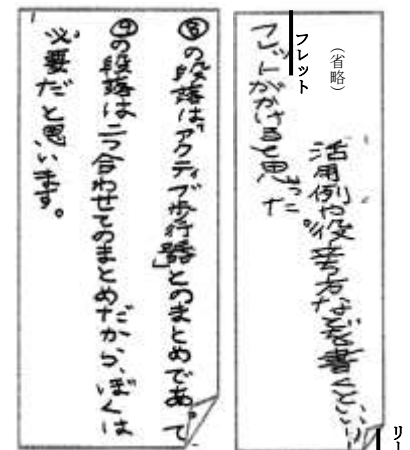 （省略）
活用例や役、考え方など書くといいリー
フレットがかけると思った。
リー
フレット
⑧の段落は、「アクティブ歩行器」とのまとめであって
⑨の段落は二つ合わせてのまとめだから、ぼくは
必要だと思います。